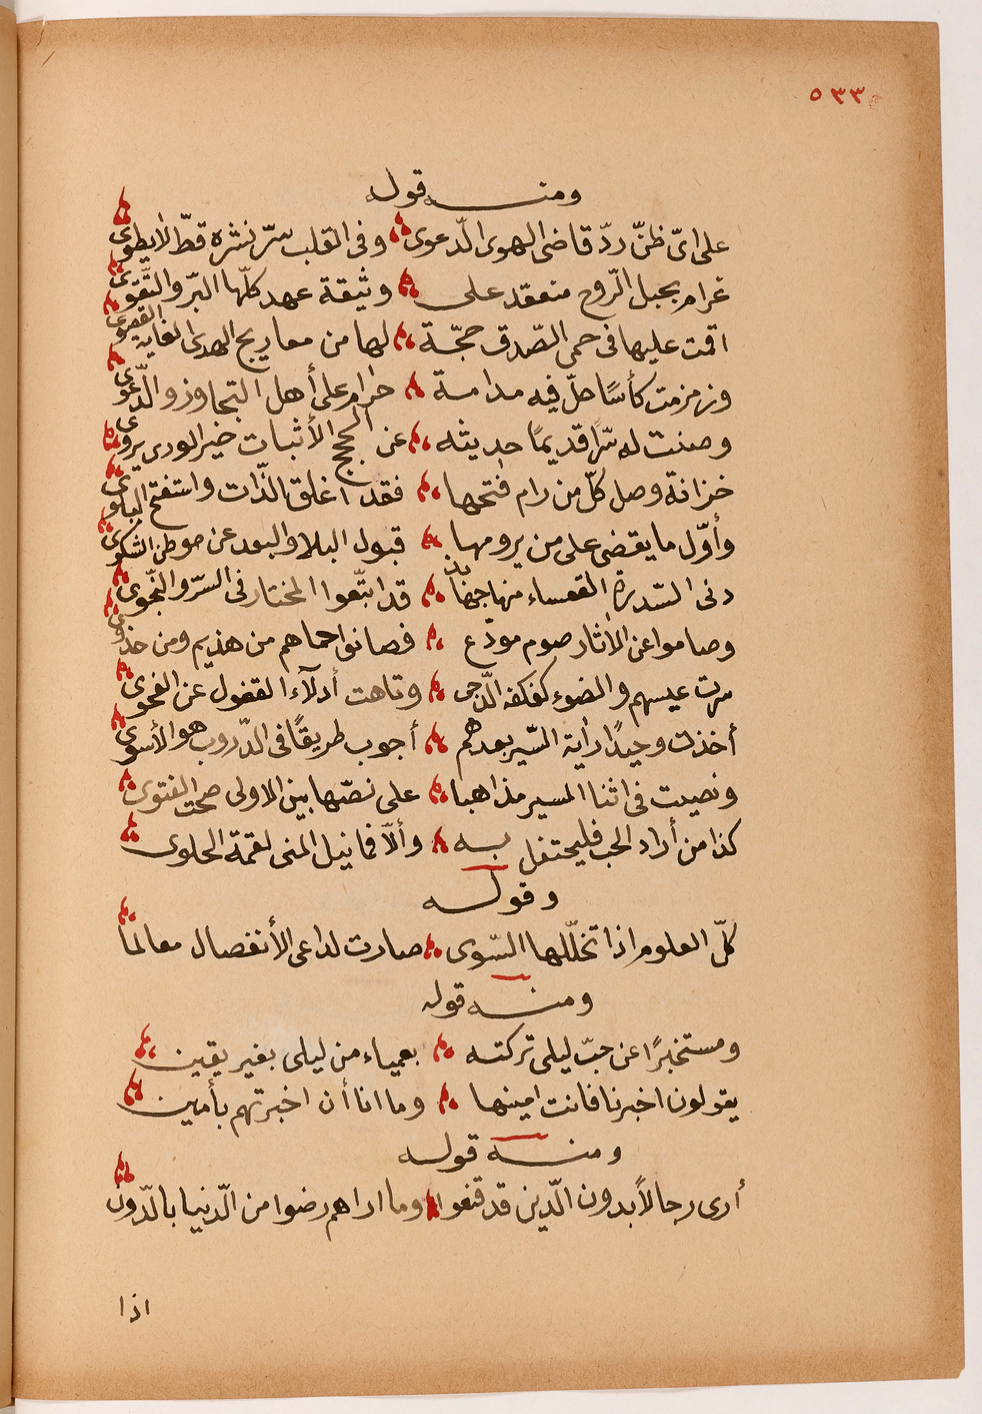 ٥٣٣
ومنه قوله
على اىّ ظنّ ردّ قاضى الهوى الدّعوى وفى القلب سرّ نشره قطّ لا يطوى
غرام بحبل الرّوح منعقد على وثيقة عهد كلّها البرّ والتّقوى
اقمت عليها فى حمى الصّدق حجّة لها من معاريج الهدى الغاية القصوى
وزمزمت كأسًا حلّ فيه مدامة حرام على أهل التجاوز والدّعوى
وصنت له سرّا قديمًا حديثه عن الحجج الأثبات خير الورى يروى
خزانة وصل كلّ من رام فتحها فقد اغلق الذّات واستفتح البلوى
وأوّل ما يقضى على من يرومها قبول البلا والبعد عن موطن الشكوى
دنى السّدرة القعساء منها جهابذ قد اتبّعوا المختار فى السرّ والنّجوى
وصاموا عن الأثار صوم مودّع فصانوا حماهم من هذيم ومن حذوى
سرت عيسهم والضوء كفكفه الدّجى وتاهت أدلآء القفول عن الفحوى
أخذت وحيدًا راية السّير بعدهم أجوب طريقًا فى الدّروب هو الأسوى
ونصيت فى اثنا المسير مذاهبا على نصّها بين الاولى صحت الفتوى
كذا من أراد الحب فليحتفل به وألاّ فما نيل المنى لقمة الحلوى
وقوله
كلّ العلوم اذا تخلّلها السّوى صارت لداعى الأنفصال معالما
ومنه قوله
ومستخبرًا عن حبّ ليلى تركته بعمياء من ليلى بغير يقين
يقولون اخبرنا فانت امينها وما انا أن اخبرتهم بأمين
ومنه قوله
أرى رجالاً بدون الدّين قد قنعوا وما اراهم رضوا من الدّنيا بالدّون
اذا